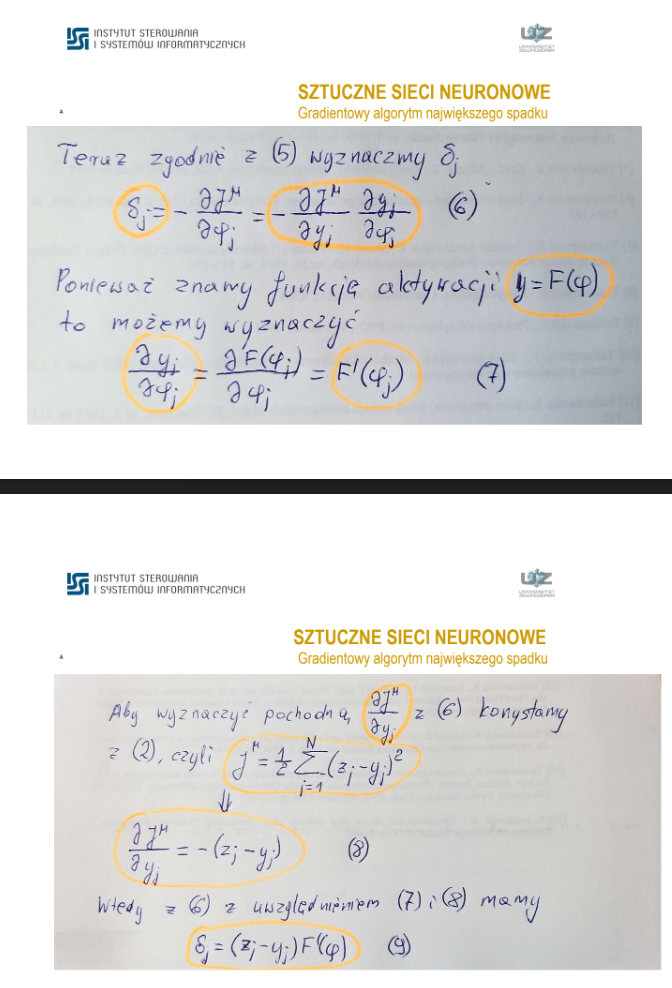 INSTYTUT STEROWANIA
I SYSTEMÓW INFORMATYCZNYCH
UZ
UNIWERSYTET
ZIELONOGÓRSKI
SZTUCZNE SIECI NEURONOWE
Gradientowy algorytm największego spadku
Teraz zgodnie z (5) wyznaczmy δⱼ
δⱼ = - ∂J^μ/∂φⱼ = - ∂J^μ/∂yⱼ ∂yⱼ/∂φⱼ (6)
Ponieważ znamy funkcję aktywacji y = F(φ)
to możemy wyznaczyć
∂yⱼ/∂φⱼ = ∂F(φⱼ)/∂φⱼ = F'(φⱼ) (7)
INSTYTUT STEROWANIA
I SYSTEMÓW INFORMATYCZNYCH
UZ
UNIWERSYTET
ZIELONOGÓRSKI
SZTUCZNE SIECI NEURONOWE
Gradientowy algorytm największego spadku
Aby wyznaczyć pochodną ∂J^μ/∂yⱼ z (6) korzystamy
z (2), czyli J^μ = 1/2 Σ_{j=1}^{N} (zⱼ - yⱼ)²
⇓
∂J^μ/∂yⱼ = - (zⱼ - yⱼ) (8)
Wtedy z (6) z uwzględnieniem (7) i (8) mamy
δⱼ = (zⱼ - yⱼ) F'(φ) (9)